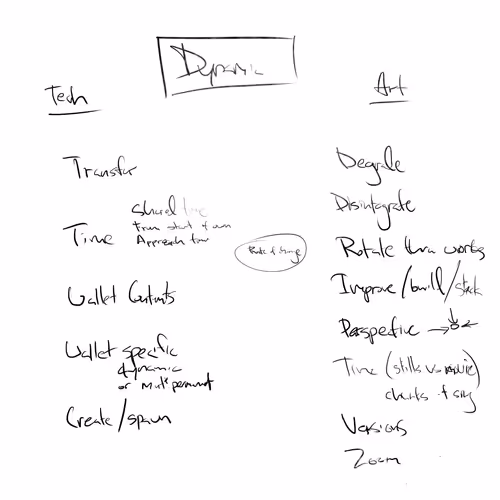 Dynamic
Tech
Art
Transfer
Time
Shared time
from start of own
Approach for
Wallet Contents
Wallet specific
dynamic
or Mult permanent
Create/spawn
Rate of change
Degrade
Disintegrate
Rotate thru works
Improve/build/stack
Perspective
Time (stills vs movie)
chunks of
Versions
Zoom